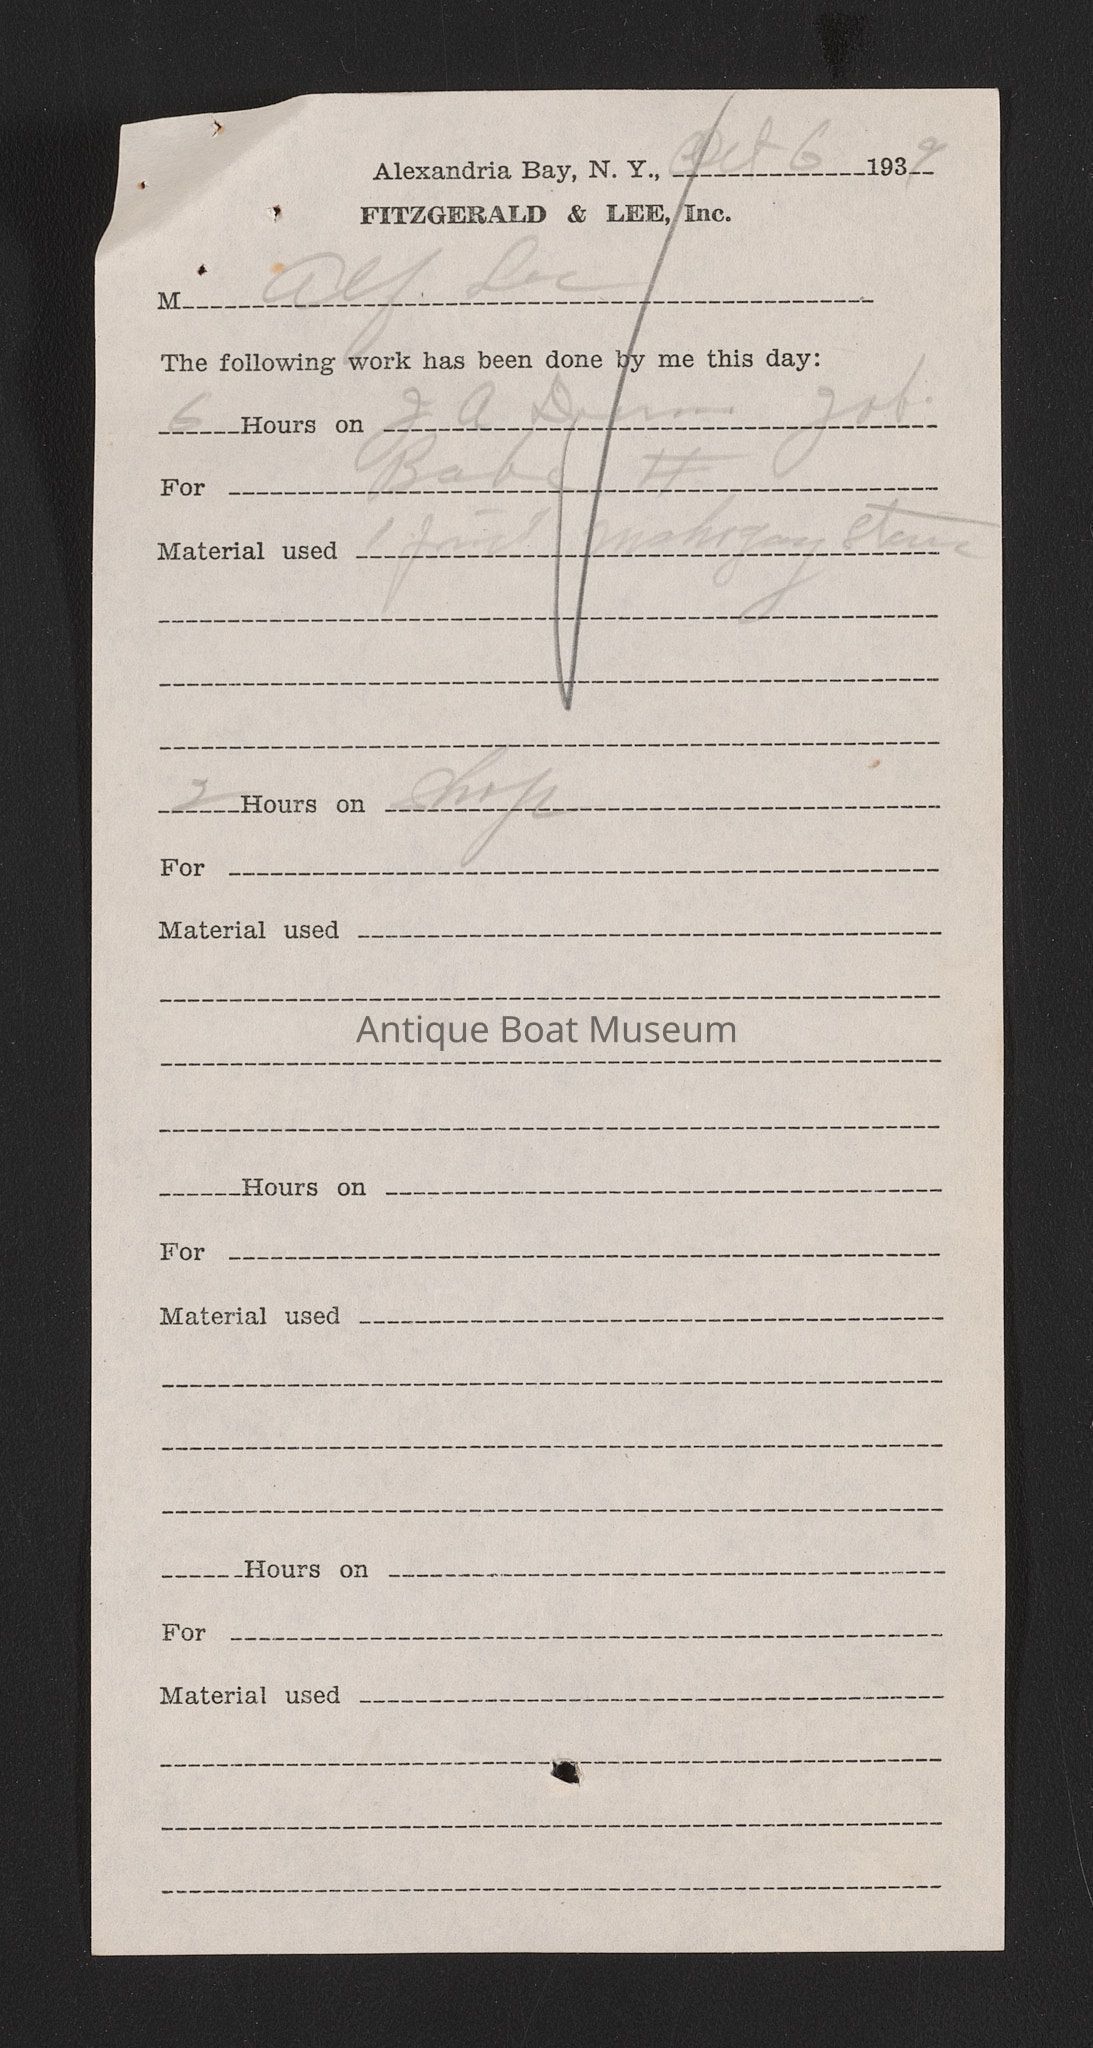 Alexandria Bay, N. Y., Oct 6 1939
FITZGERALD & LEE, Inc.
M Alf Lee
The following work has been done by me this day:
6 Hours on J A Down job.
For Babe II
Material used 1 pint mahogany Stain
2 Hours on Shop
For
Material used
Antique Boat Museum
Hours on
For
Material used
Hours on
For
Material used